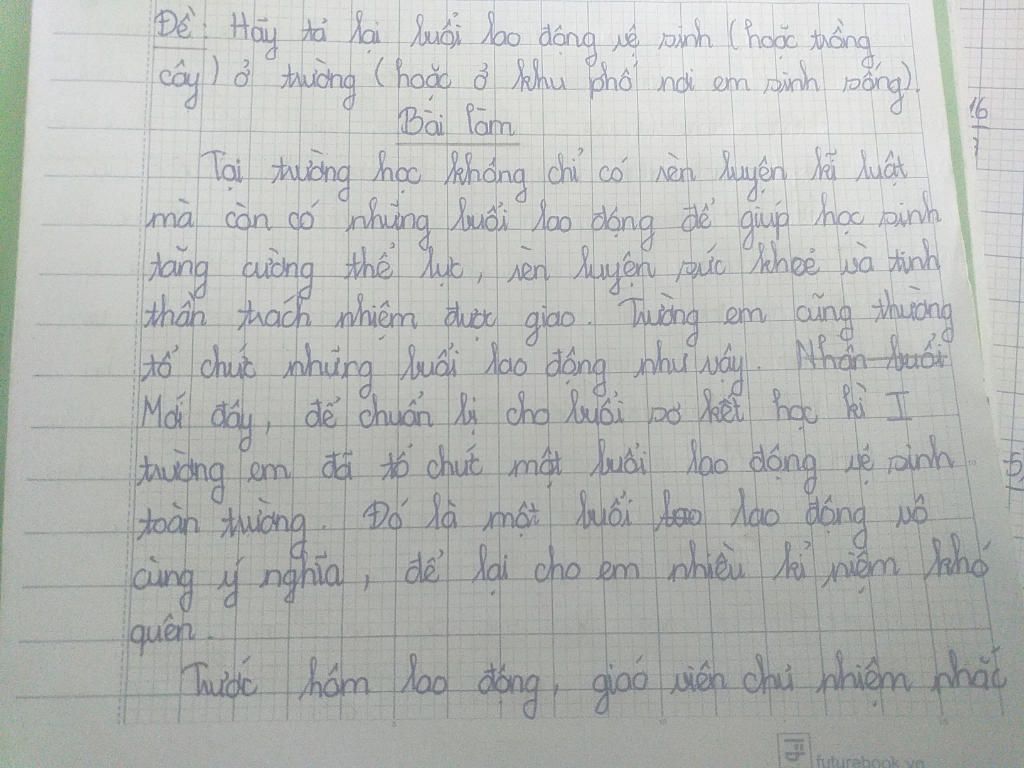 Đề: Hãy tả lại buổi lao động vệ sinh (hoặc trồng
cây) ở trường (hoặc ở khu phố nơi em sinh sống).
Bài làm
Tại trường học không chỉ có rèn luyện kỉ luật
mà còn có những buổi lao động để giúp học sinh
tăng cường thể lực, rèn luyện sức khoẻ và tinh
thần trách nhiệm được giao. Trường em cũng thường
tổ chức những buổi lao động như vậy. Nhân buổi
Mới đây, để chuẩn bị cho buổi sơ kết học kì I
trường em đã tổ chức một buổi lao động vệ sinh
toàn trường. Đó là một buổi lao lao động vô
cùng ý nghĩa, để lại cho em nhiều kỉ niệm khó
quên.
Trước hôm lao động, giáo viên chủ nhiệm nhắc
16
5
futurebook.vn